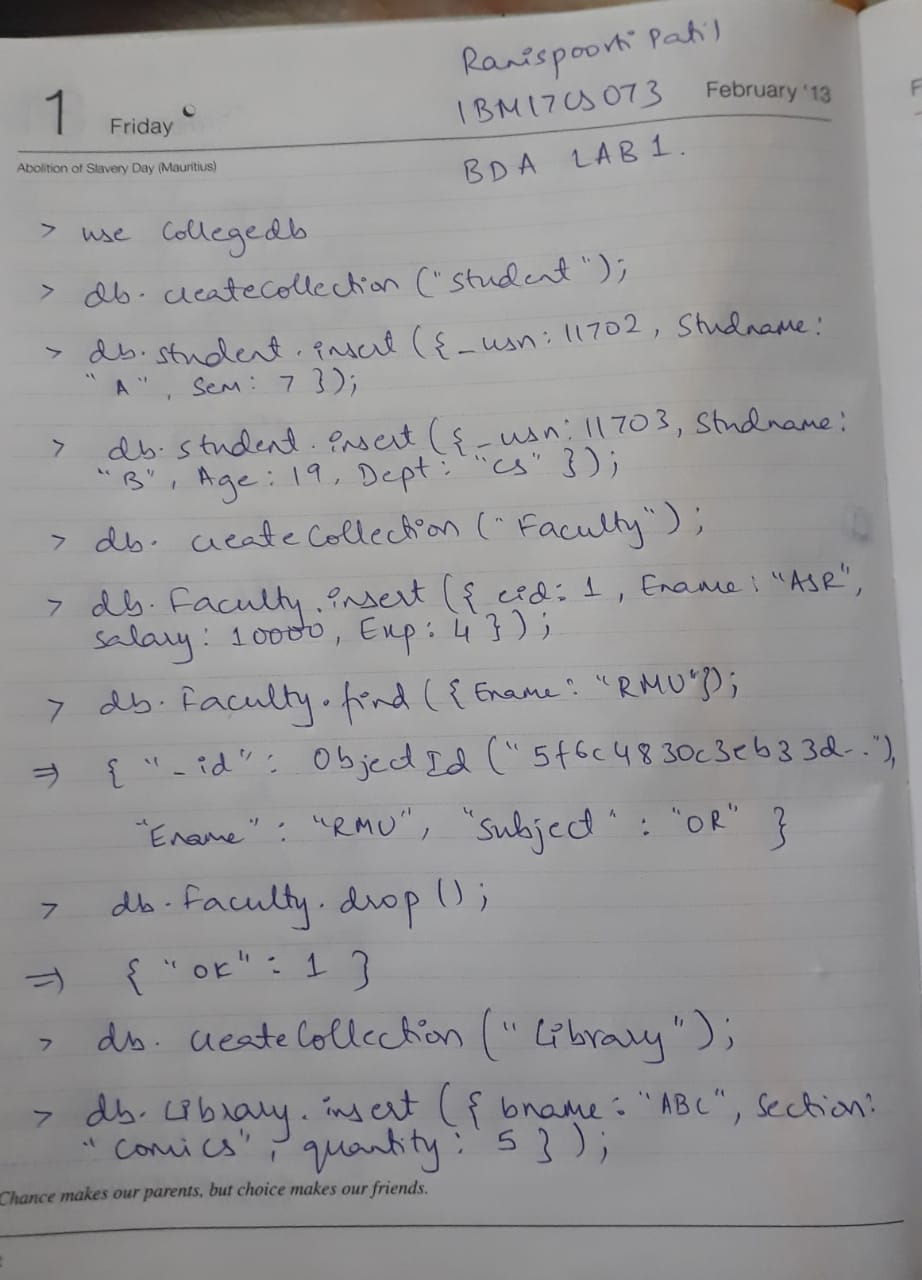 Ranispoorti Patil
1 Friday 1BM17CS073 February '13
Abolition of Slavery Day (Mauritius)
BDA LAB 1.
> use Collegedb
> db. createcollection ("student");
> db.student.insert ({_usn: 11702, Studname:
"A", Sem: 7 });
> db. student.insert ({_usn: 11703, Studname:
"B", Age: 19, Dept: "CS" });
> db. createCollection ("Faculty");
> db. Faculty.insert ({ eid: 1, Ename: "ASR",
salary: 10000, Exp: 4 });
> db. Faculty.find ({ Ename: "RMU"});
⇒ { "_id": ObjectId ("5f6c4830c3eb33d--"),
"Ename": "RMU", "Subject": "OR" }
> db. Faculty. drop ();
⇒ { "ok": 1 }
> db. createCollection ("Library");
> db. Library. insert ({ bname: "ABC", Section:
"comics", quantity: 5 });
Chance makes our parents, but choice makes our friends.